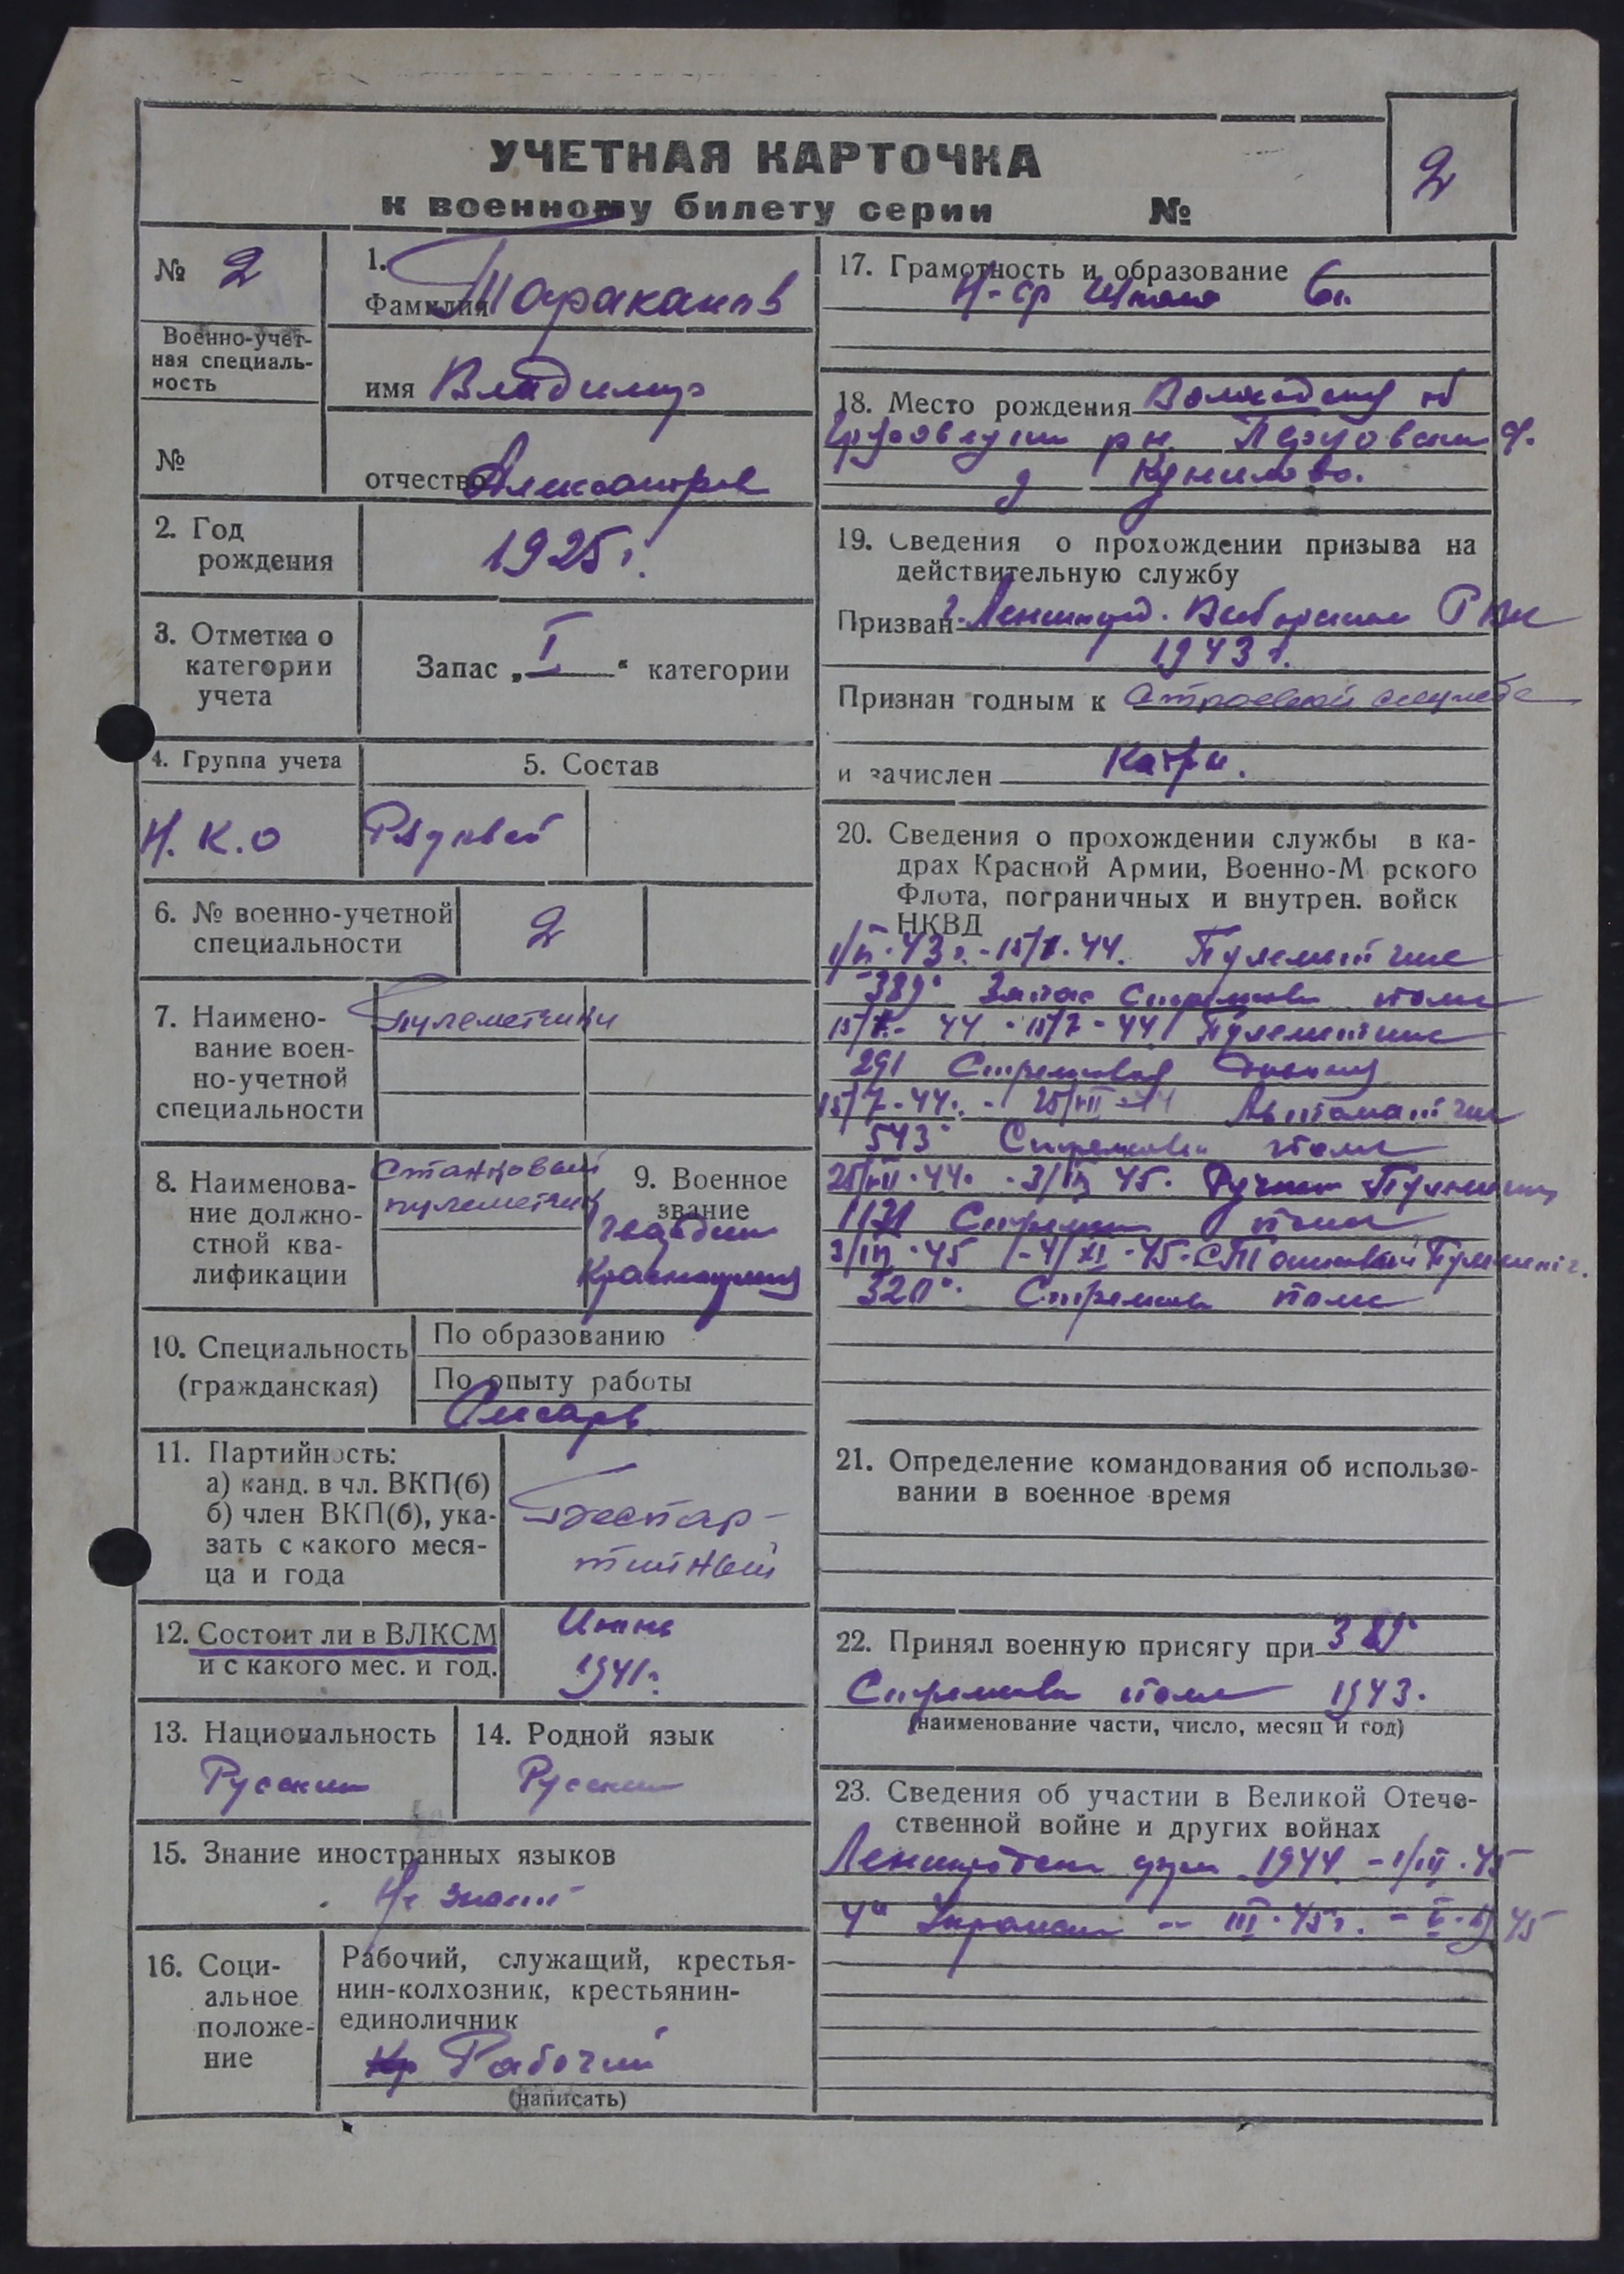 УЧЕТНАЯ КАРТОЧКА
к военному билету серии №
2
№ 2
Военно-учет-
ная специаль-
ность
№
1.
Фамилия Тараканов
имя Владимир
отчество Александров
2. Год
рождения
1925 г.
3. Отметка о
категории
учета
Запас „I“ категории
4. Группа учета
Н.К.О
5. Состав
Рядовой
6. № военно-учетной
специальности
2
7. Наимено-
вание воен-
но-учетной
специальности
Пулеметчики
8. Наименова-
ние должно-
стной ква-
лификации
Станковый
пулеметчик
9. Военное
звание
гвардии
Красноармеец
10. Специальность
(гражданская)
По образованию
По опыту работы
Слесарь
11. Партийность:
а) канд. в чл. ВКП(б)
б) член ВКП(б), ука-
зать с какого меся-
ца и года
Беспар-
тийный
12. Состоит ли в ВЛКСМ
и с какого мес. и год.
1941 г.
13. Национальность
Русский
14. Родной язык
Русский
15. Знание иностранных языков
Не знает
16. Соци-
альное
положе-
ние
Рабочий, служащий, крестья-
нин-колхозник, крестьянин-
единоличник
Кр Рабочий
(написать)
17. Грамотность и образование
Н-ср школа 6 кл.
18. Место рождения Вологодская об
Грязовецкий р-н с.
д
19. Сведения о прохождении призыва на
действительную службу
Призван г. Ленинград. Выборгским РВК
1943 г.
Признан годным к строевой службе
и зачислен
20. Сведения о прохождении службы в ка-
драх Красной Армии, Военно-М рского
Флота, пограничных и внутрен. войск
НКВД
Пулеметчик
389 Запас Стрелков полк
Пулеметчик
291 Стрелковая дивизия
Автоматчик
543 Стрелковый полк
25/VII-44. - 3/III 45. Ручной Пулеметчик
1171 Стрелков полк
3/III-45 - 4/XI-45 Станковый Пулеметч.
320 Стрелков полк
21. Определение командования об использо-
вании в военное время
22. Принял военную присягу при 389
Стрелковом полке 1943.
(наименование части, число, месяц и год)
23. Сведения об участии в Великой Отече-
ственной войне и других войнах
Ленинградский фрон 1944 - 1/III-45
4й Украинский - III-45 г. - V 45